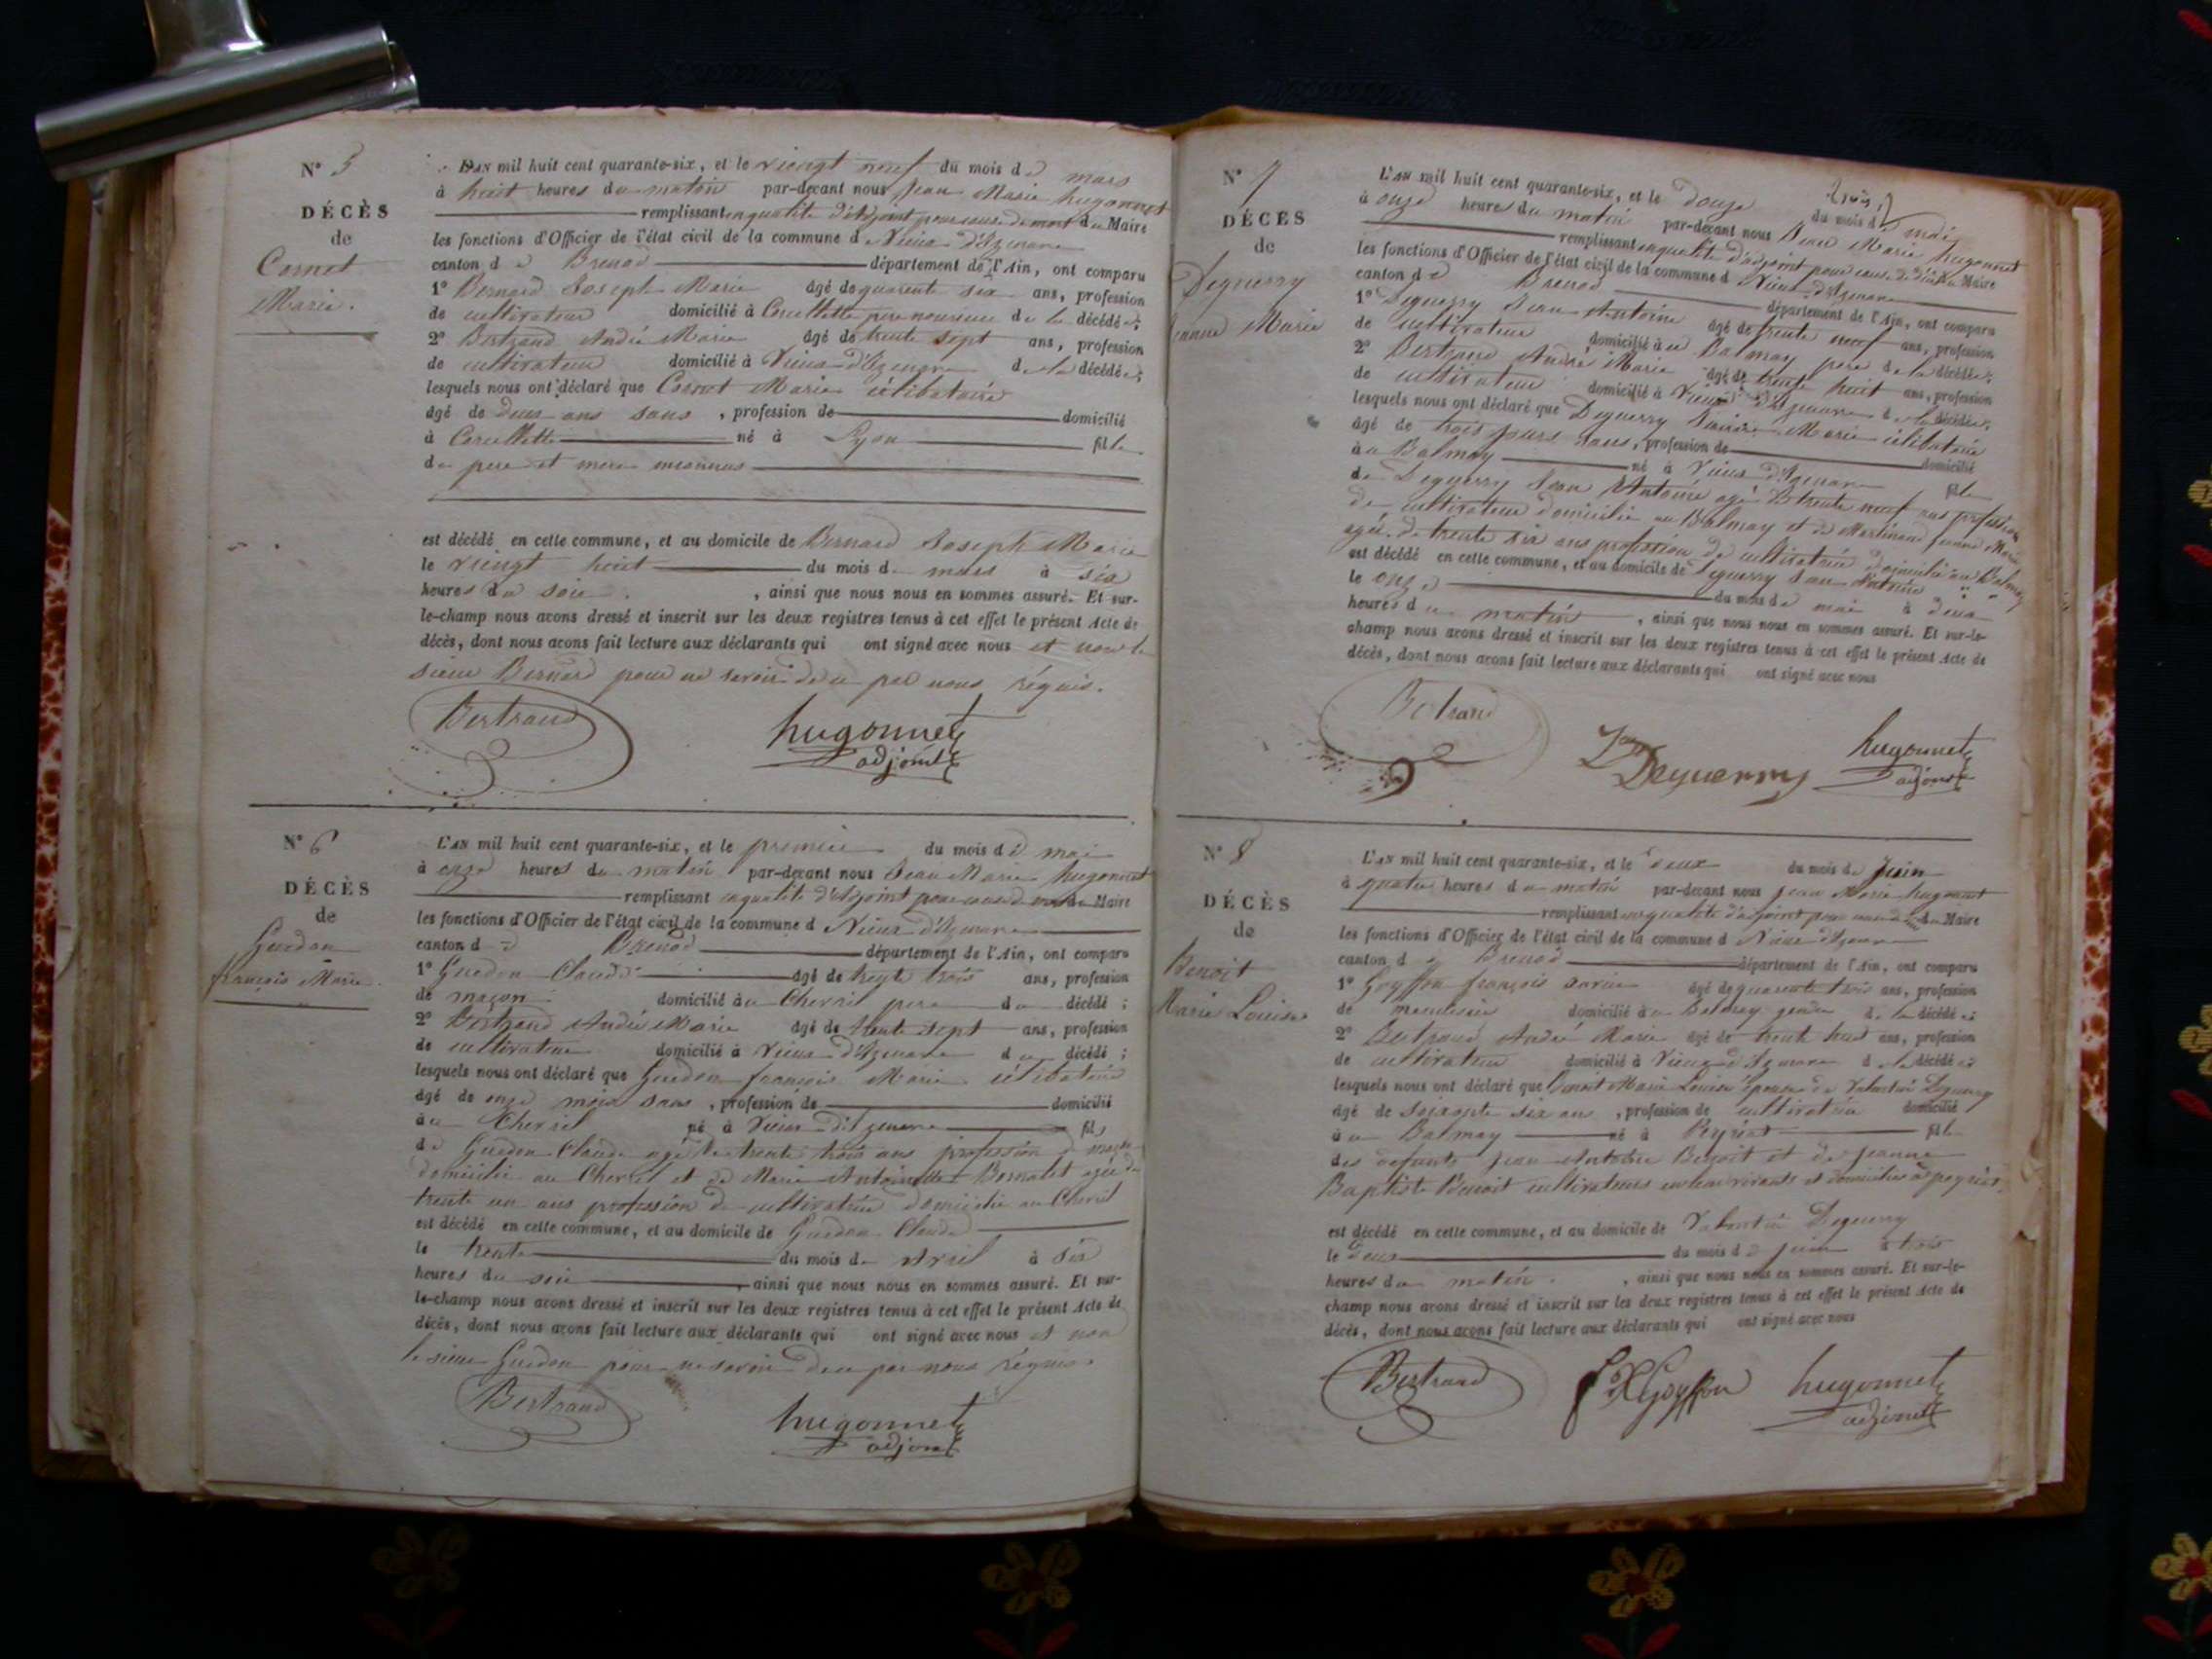 N° 5
DÉCÈS
de
Cornet
Marie.
L'AN mil huit cent quarante-six, et le viengt neuf du mois de mars
à huit heures du matin par-devant nous Jean Marie hugonnet
remplissant en qualité d'Adjoint pour cause de mort du Maire
les fonctions d'Officier de l'état civil de la commune de Vieux d'Izenave
canton de Brenod département de l'Ain, ont comparu
1° Bernard Joseph Marie âgé de quarente six ans, profession
de cultivateur domicilié à Corcellette pere nouricier de la décédée;
2° Bertrand André Marie âgé de trente sept ans, profession
de cultivateur domicilié à Vieux d'Izenave de la décédée;
lesquels nous ont déclaré que Cornet Marie célibataire
âgé de deux ans sans, profession de domicilié
à Corcellette né à Lyon fille
de pere et mere inconnus
est décédé en cette commune, et au domicile de Bernard Joseph Marie
le viengt huit du mois de mars à six
heures du soir, ainsi que nous nous en sommes assuré. Et sur-
le-champ nous avons dressé et inscrit sur les deux registres tenus à cet effet le présent Acte de
décès, dont nous avons fait lecture aux déclarants qui ont signé avec nous et non le
sieur Bernard pour ne savoir de ce par nous réquis.
Bertrand
hugonnet
adjoint
N° 6
DÉCÈS
de
Guedon
françois Marie.
L'AN mil huit cent quarante-six, et le premier du mois de mai
à onze heures du matin par-devant nous Jean Marie hugonnet
remplissant en qualité d'Adjoint pour cause de mort du Maire
les fonctions d'Officier de l'état civil de la commune de Vieux d'Izenave
canton de Brenod département de l'Ain, ont comparu
1° Guedon Claude âgé de trente trois ans, profession
de maçon domicilié au Chevril pere du décédé;
2° Bertrand André Marie âgé de trente sept ans, profession
de cultivateur domicilié à Vieux d'Izenave du décédé;
lesquels nous ont déclaré que Guedon françois Marie célibataire
âgé de onze mois sans, profession de domicilié
au Chevril né à Vieux d'Izenave fils
de Guedon Claude agé de trente trois ans profession de maçon
domicilié au Chevril et de Marie Antoinette Bornalet agée de
trente un ans profession de cultivatrice domiciliée au Chevril
est décédé en cette commune, et au domicile de Guedon Claude
le trente du mois de Avril à six
heures du soir ainsi que nous nous en sommes assuré. Et sur-
le-champ nous avons dressé et inscrit sur les deux registres tenus à cet effet le présent Acte de
décès, dont nous avons fait lecture aux déclarants qui ont signé avec nous et non
le sieur Guedon pour ne savoir de ce par nous réquis.
Bertrand
hugonnet
adjoint
N° 7
DÉCÈS
de
Deguerry
Marie
L'AN mil huit cent quarante-six, et le douze du mois de mai
à onze heures du matin par-devant nous Jean Marie hugonnet
remplissant en qualité d'adjoint pour cause de du Maire
les fonctions d'Officier de l'état civil de la commune de Vieux d'Izenave
canton de Brenod département de l'Ain, ont comparu
1° Deguerry Jean Antoine âgé de trente neuf ans, profession
de cultivateur domicilié au Balmay pere de la décédée;
2° Bertrand André Marie âgé de trente huit ans, profession
de cultivateur domicilié à Vieux d'Izenave de la décédée;
lesquels nous ont déclaré que Deguerry Marie célibataire
âgé de trois jours sans, profession de domicilié
au Balmay né à Vieux d'Izenave fille
de Deguerry Jean Antoine agé de trente neuf ans profession
de cultivateur domicilié au Balmay et de Martinand Marie
agée de trente six ans profession de cultivatrice domiciliée au Balmay
est décédé en cette commune, et au domicile de Deguerry Jean Antoine
le onze du mois de mai à deux
heures du matin, ainsi que nous nous en sommes assuré. Et sur-le-
champ nous avons dressé et inscrit sur les deux registres tenus à cet effet le présent Acte de
décès, dont nous avons fait lecture aux déclarants qui ont signé avec nous
Bertrand
Deguerry
hugonnet
adjoint
N° 8
DÉCÈS
de
Benoit
Marie Louise
L'AN mil huit cent quarante-six, et le deux du mois de Juin
à quatre heures du matin par-devant nous Jean Marie hugonnet
remplissant en qualité d'adjoint pour cause de du Maire
les fonctions d'Officier de l'état civil de la commune de Vieux d'Izenave
canton de Brenod département de l'Ain, ont comparu
1° Goyffon françois âgé de quarente trois ans, profession
de menuisier domicilié au Balmay gendre de la décédée;
2° Bertrand André Marie âgé de trente huit ans, profession
de cultivateur domicilié à Vieux d'Izenave de la décédée
lesquels nous ont déclaré que Benoit Marie Louise épouse de Valentin Deguerry
âgé de soixante six ans, profession de cultivatrice domicilié
au Balmay né à Peyriat fille
des defunts Jean Antoine Benoit et de Jeanne
Baptiste Benoit cultivateurs en leur vivants et domiciliés à peyriat.
est décédé en cette commune, et au domicile de Valentin Deguerry
le deux du mois de juin à trois
heures du matin, ainsi que nous nous en sommes assuré. Et sur-le-
champ nous avons dressé et inscrit sur les deux registres tenus à cet effet le présent Acte de
décès, dont nous avons fait lecture aux déclarants qui ont signé avec nous
Bertrand
F X Goyffon
hugonnet
adjoint